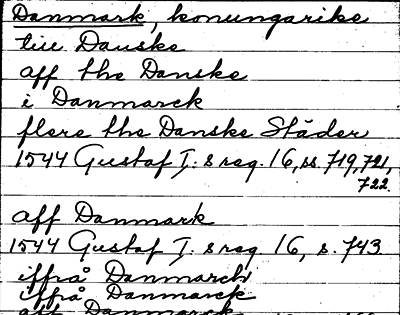 Danmark, konungarike
till Danske
aff the Danske
i Danmarck
flere the Danske Städer
1544 Gustaf I:s reg. 16, ss. 719, 721,
722.
aff Danmark
1544 Gustaf I:s reg 16, s. 743
iffrå Danmarck
iffrå Danmarck
aff Danmarck